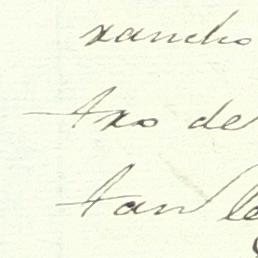 rancho
tro de
tan le